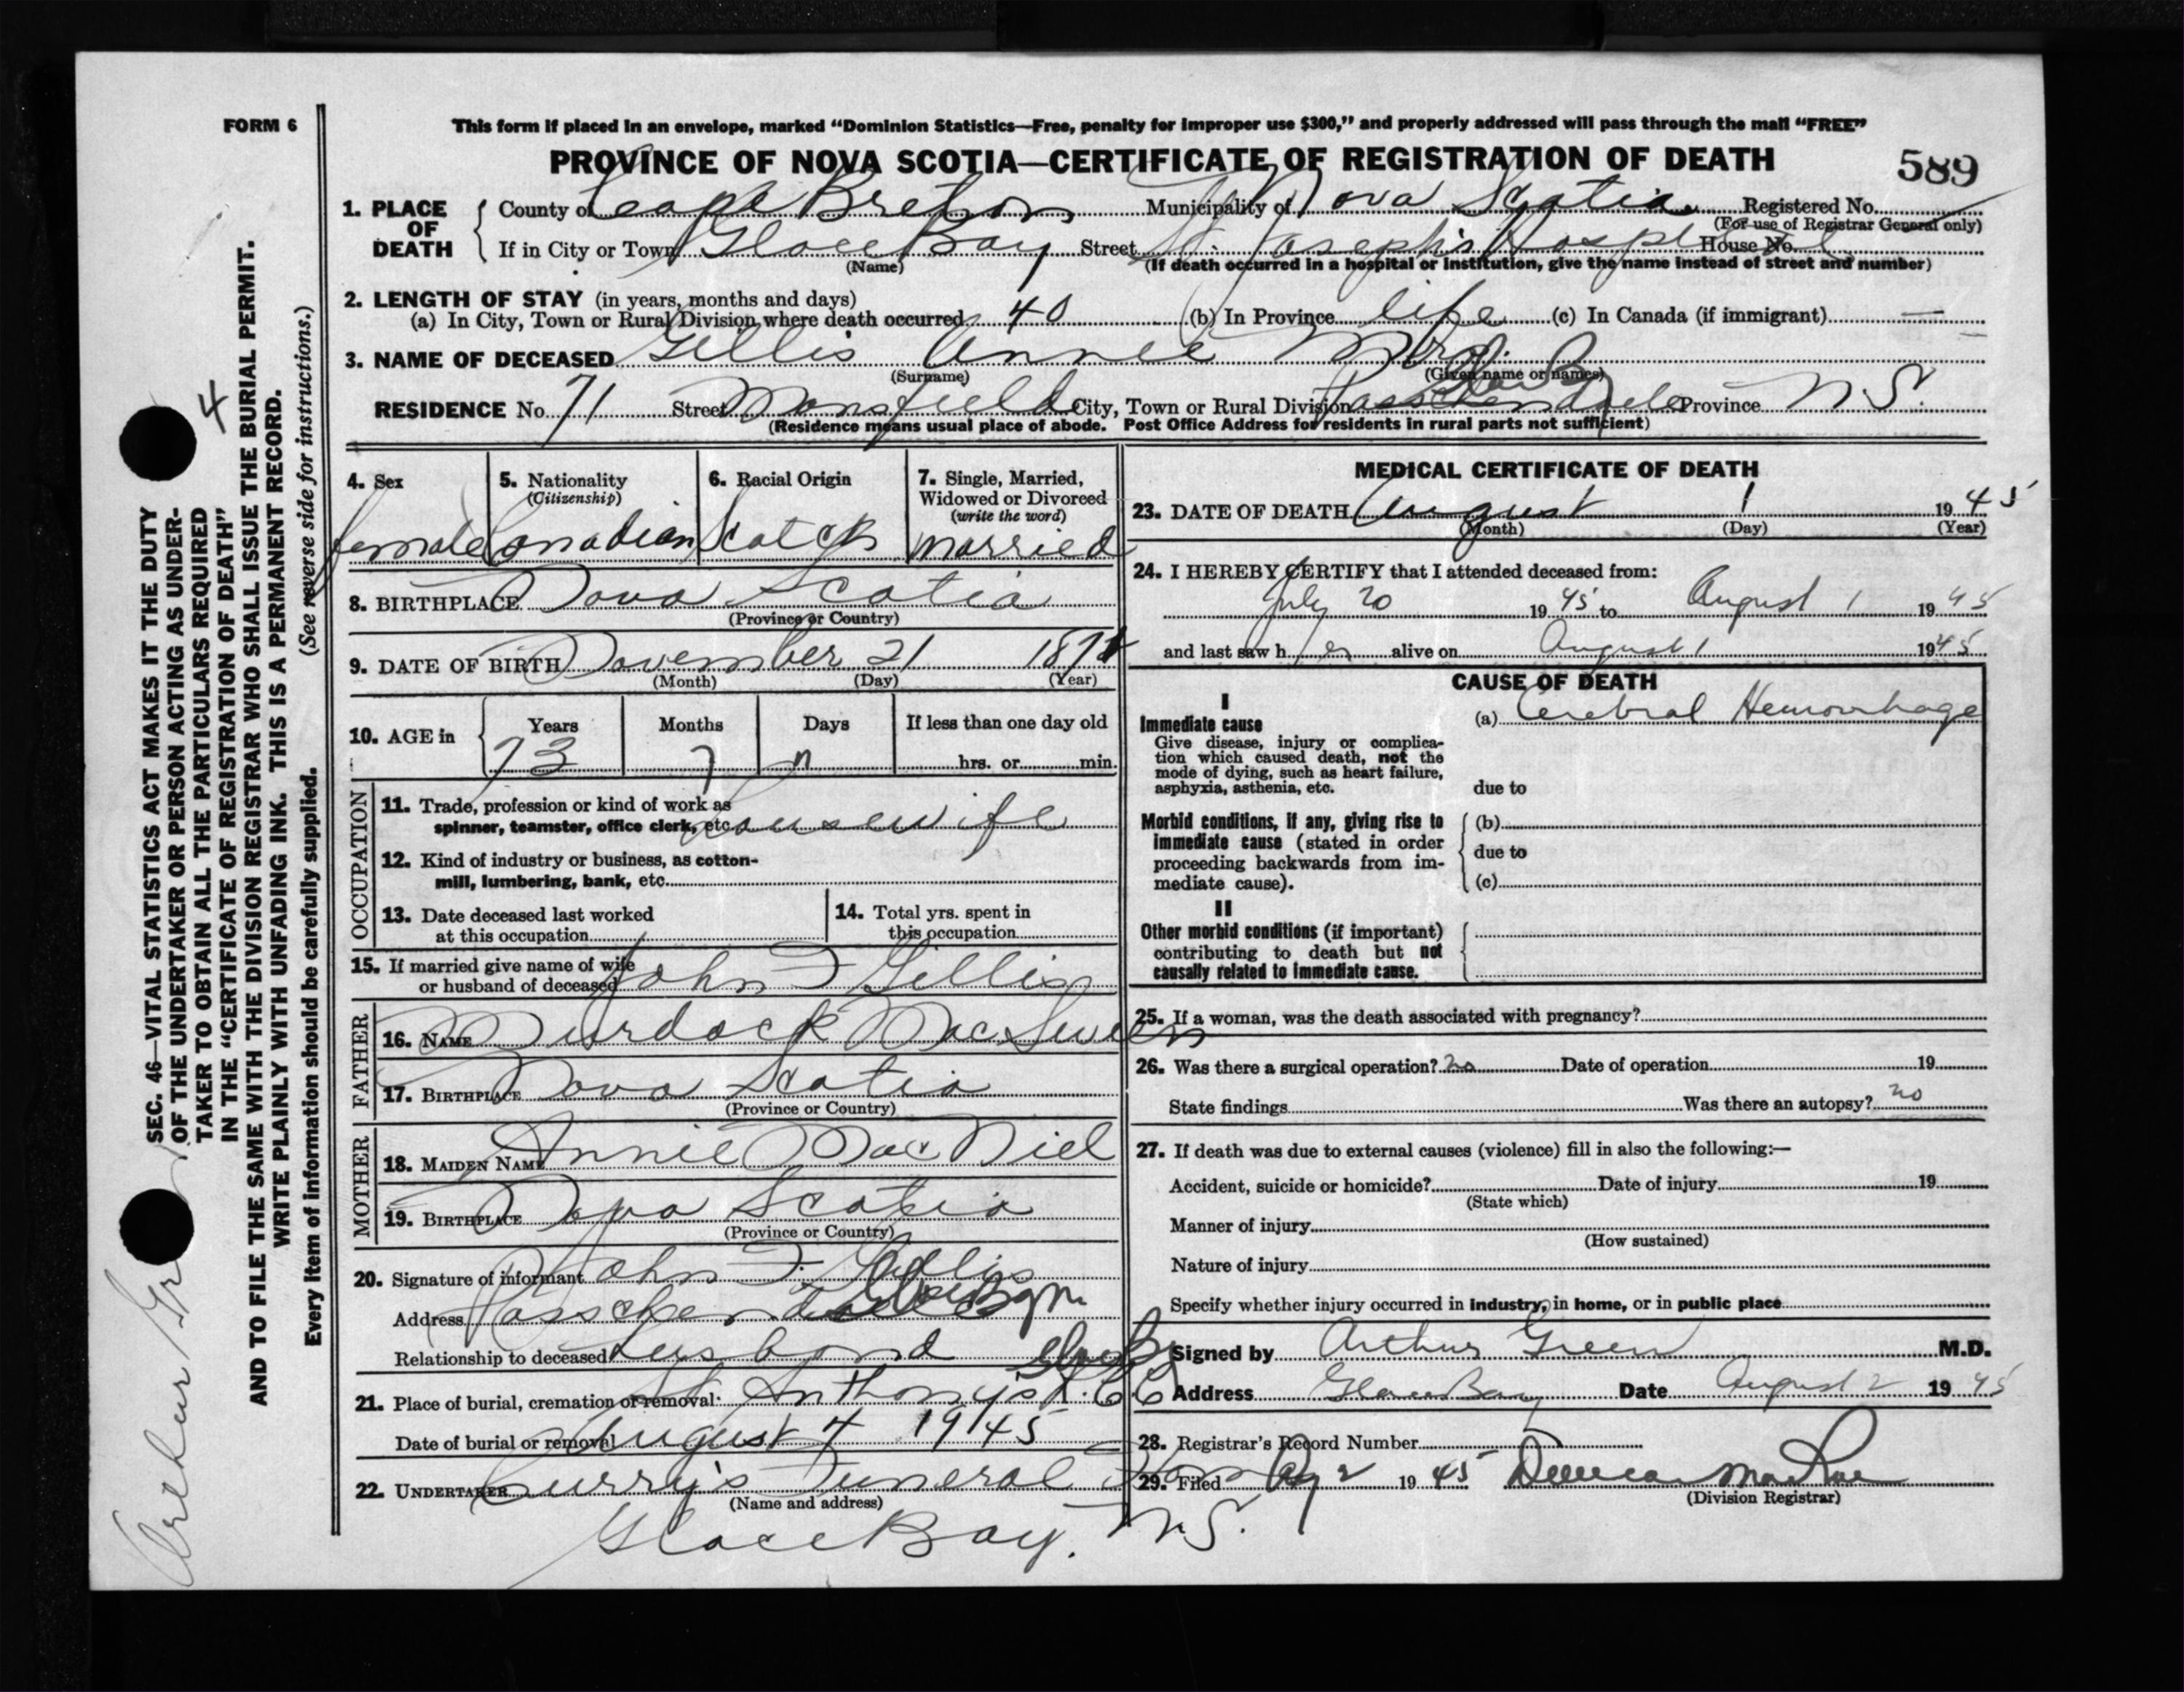 FORM 6
This form if placed in an envelope, marked “Dominion Statistics—Free, penalty for improper use $300,” and properly addressed will pass through the mail “FREE”
PROVINCE OF NOVA SCOTIA—CERTIFICATE OF REGISTRATION OF DEATH
589
1. PLACE OF DEATH
County of Cape Breton Municipality of Nova Scotia Registered No.
(For use of Registrar General only)
If in City or Town Glace Bay Street St. Joseph's Hospital House No.
(Name) (If death occurred in a hospital or institution, give the name instead of street and number)
2. LENGTH OF STAY (in years, months and days)
(a) In City, Town or Rural Division where death occurred 40 (b) In Province life (c) In Canada (if immigrant) —
3. NAME OF DECEASED Gillis Annie Mrs.
(Surname) (Given name or names)
RESIDENCE No. 71 Street Mansfield City, Town or Rural Division Passchendaele Province N.S.
(Residence means usual place of abode. Post Office Address for residents in rural parts not sufficient)
4. Sex
female
5. Nationality
(Citizenship)
Canadian
6. Racial Origin
Scotch
7. Single, Married,
Widowed or Divorced
(write the word)
married
8. BIRTHPLACE Nova Scotia
(Province or Country)
9. DATE OF BIRTH November 21 1871
(Month) (Day) (Year)
10. AGE in
Years Months Days If less than one day old
73 7 hrs. or min.
OCCUPATION
11. Trade, profession or kind of work as
spinner, teamster, office clerk, etc. housewife
12. Kind of industry or business, as cotton-
mill, lumbering, bank, etc.
13. Date deceased last worked
at this occupation
14. Total yrs. spent in
this occupation
15. If married give name of wife
or husband of deceased John F Gillis
FATHER
16. NAME Murdock MacSween
17. BIRTHPLACE Nova Scotia
(Province or Country)
MOTHER
18. MAIDEN NAME Annie MacNiel
19. BIRTHPLACE Nova Scotia
(Province or Country)
20. Signature of informant John F. Gillis
Address Passchendaele Glace Bay
Relationship to deceased husband
21. Place of burial, cremation or removal St Anthony's R.C.C Glace Bay
Date of burial or removal August 4 1945
22. UNDERTAKER Curry's Funeral Home
(Name and address)
Glace Bay. N.S.
MEDICAL CERTIFICATE OF DEATH
23. DATE OF DEATH August 1 1945
(Month) (Day) (Year)
24. I HEREBY CERTIFY that I attended deceased from:
July 20 1945 to August 1 1945
and last saw her alive on August 1 1945
CAUSE OF DEATH
I
Immediate cause
(a) Cerebral Hemorrhage
Give disease, injury or complica-
tion which caused death, not the
mode of dying, such as heart failure,
asphyxia, asthenia, etc.
due to
Morbid conditions, if any, giving rise to
immediate cause (stated in order
proceeding backwards from im-
mediate cause).
(b)
due to
(c)
II
Other morbid conditions (if important)
contributing to death but not
causally related to immediate cause.
25. If a woman, was the death associated with pregnancy?
26. Was there a surgical operation? no Date of operation 19
State findings Was there an autopsy? no
27. If death was due to external causes (violence) fill in also the following:—
Accident, suicide or homicide? Date of injury 19
(State which)
Manner of injury
(How sustained)
Nature of injury
Specify whether injury occurred in industry, in home, or in public place
Signed by Arthur Green M.D.
Address Glace Bay Date August 2 1945
28. Registrar's Record Number
29. Filed Aug 2 1945 MacRae
(Division Registrar)
SEC. 46—VITAL STATISTICS ACT MAKES IT THE DUTY
OF THE UNDERTAKER OR PERSON ACTING AS UNDER-
TAKER TO OBTAIN ALL THE PARTICULARS REQUIRED
IN THE “CERTIFICATE OF REGISTRATION OF DEATH”
AND TO FILE THE SAME WITH THE DIVISION REGISTRAR WHO SHALL ISSUE THE BURIAL PERMIT.
WRITE PLAINLY WITH UNFADING INK. THIS IS A PERMANENT RECORD.
Every item of information should be carefully supplied. (See reverse side for instructions.)
4
Arthur